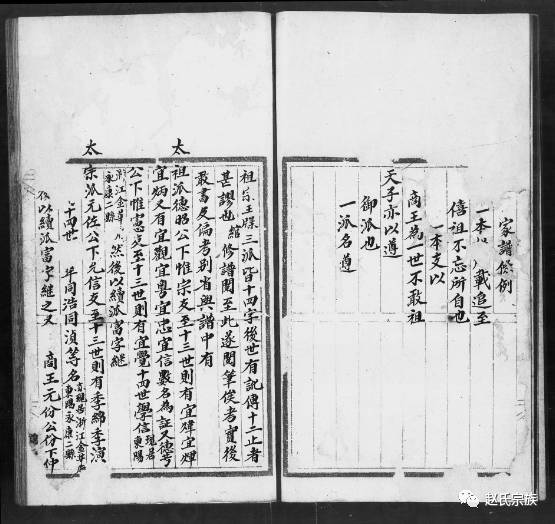 家譜條例
一本
載追至
僖祖不忘所自也
一本支以
商王為一世不敢祖
天子亦以遵
御派也
一派名遵
祖宗玉牒三派皆十四字後世有訛傳十二止者
甚謬也
修譜閱至此遂閣筆俟考實後
叢書及倫考到省與譜中有
太
祖派德昭公下惟宗支至十三世則有宜煒宜煇
宜炳又有宜觀宜粵宜忠宜信數名為証又德芳
公下惟憲支至十三世則有宜
十四世學信
東陽
浙江金華
永康二縣
然後以續派富字繼
太
宗派元佐公下允信支至十三世則有季綿季演
十四世
孟浩同湞等名
浙江金華
東陽永康二縣
後以續派富字繼之又
商王元份公份下仲
赵氏宗族